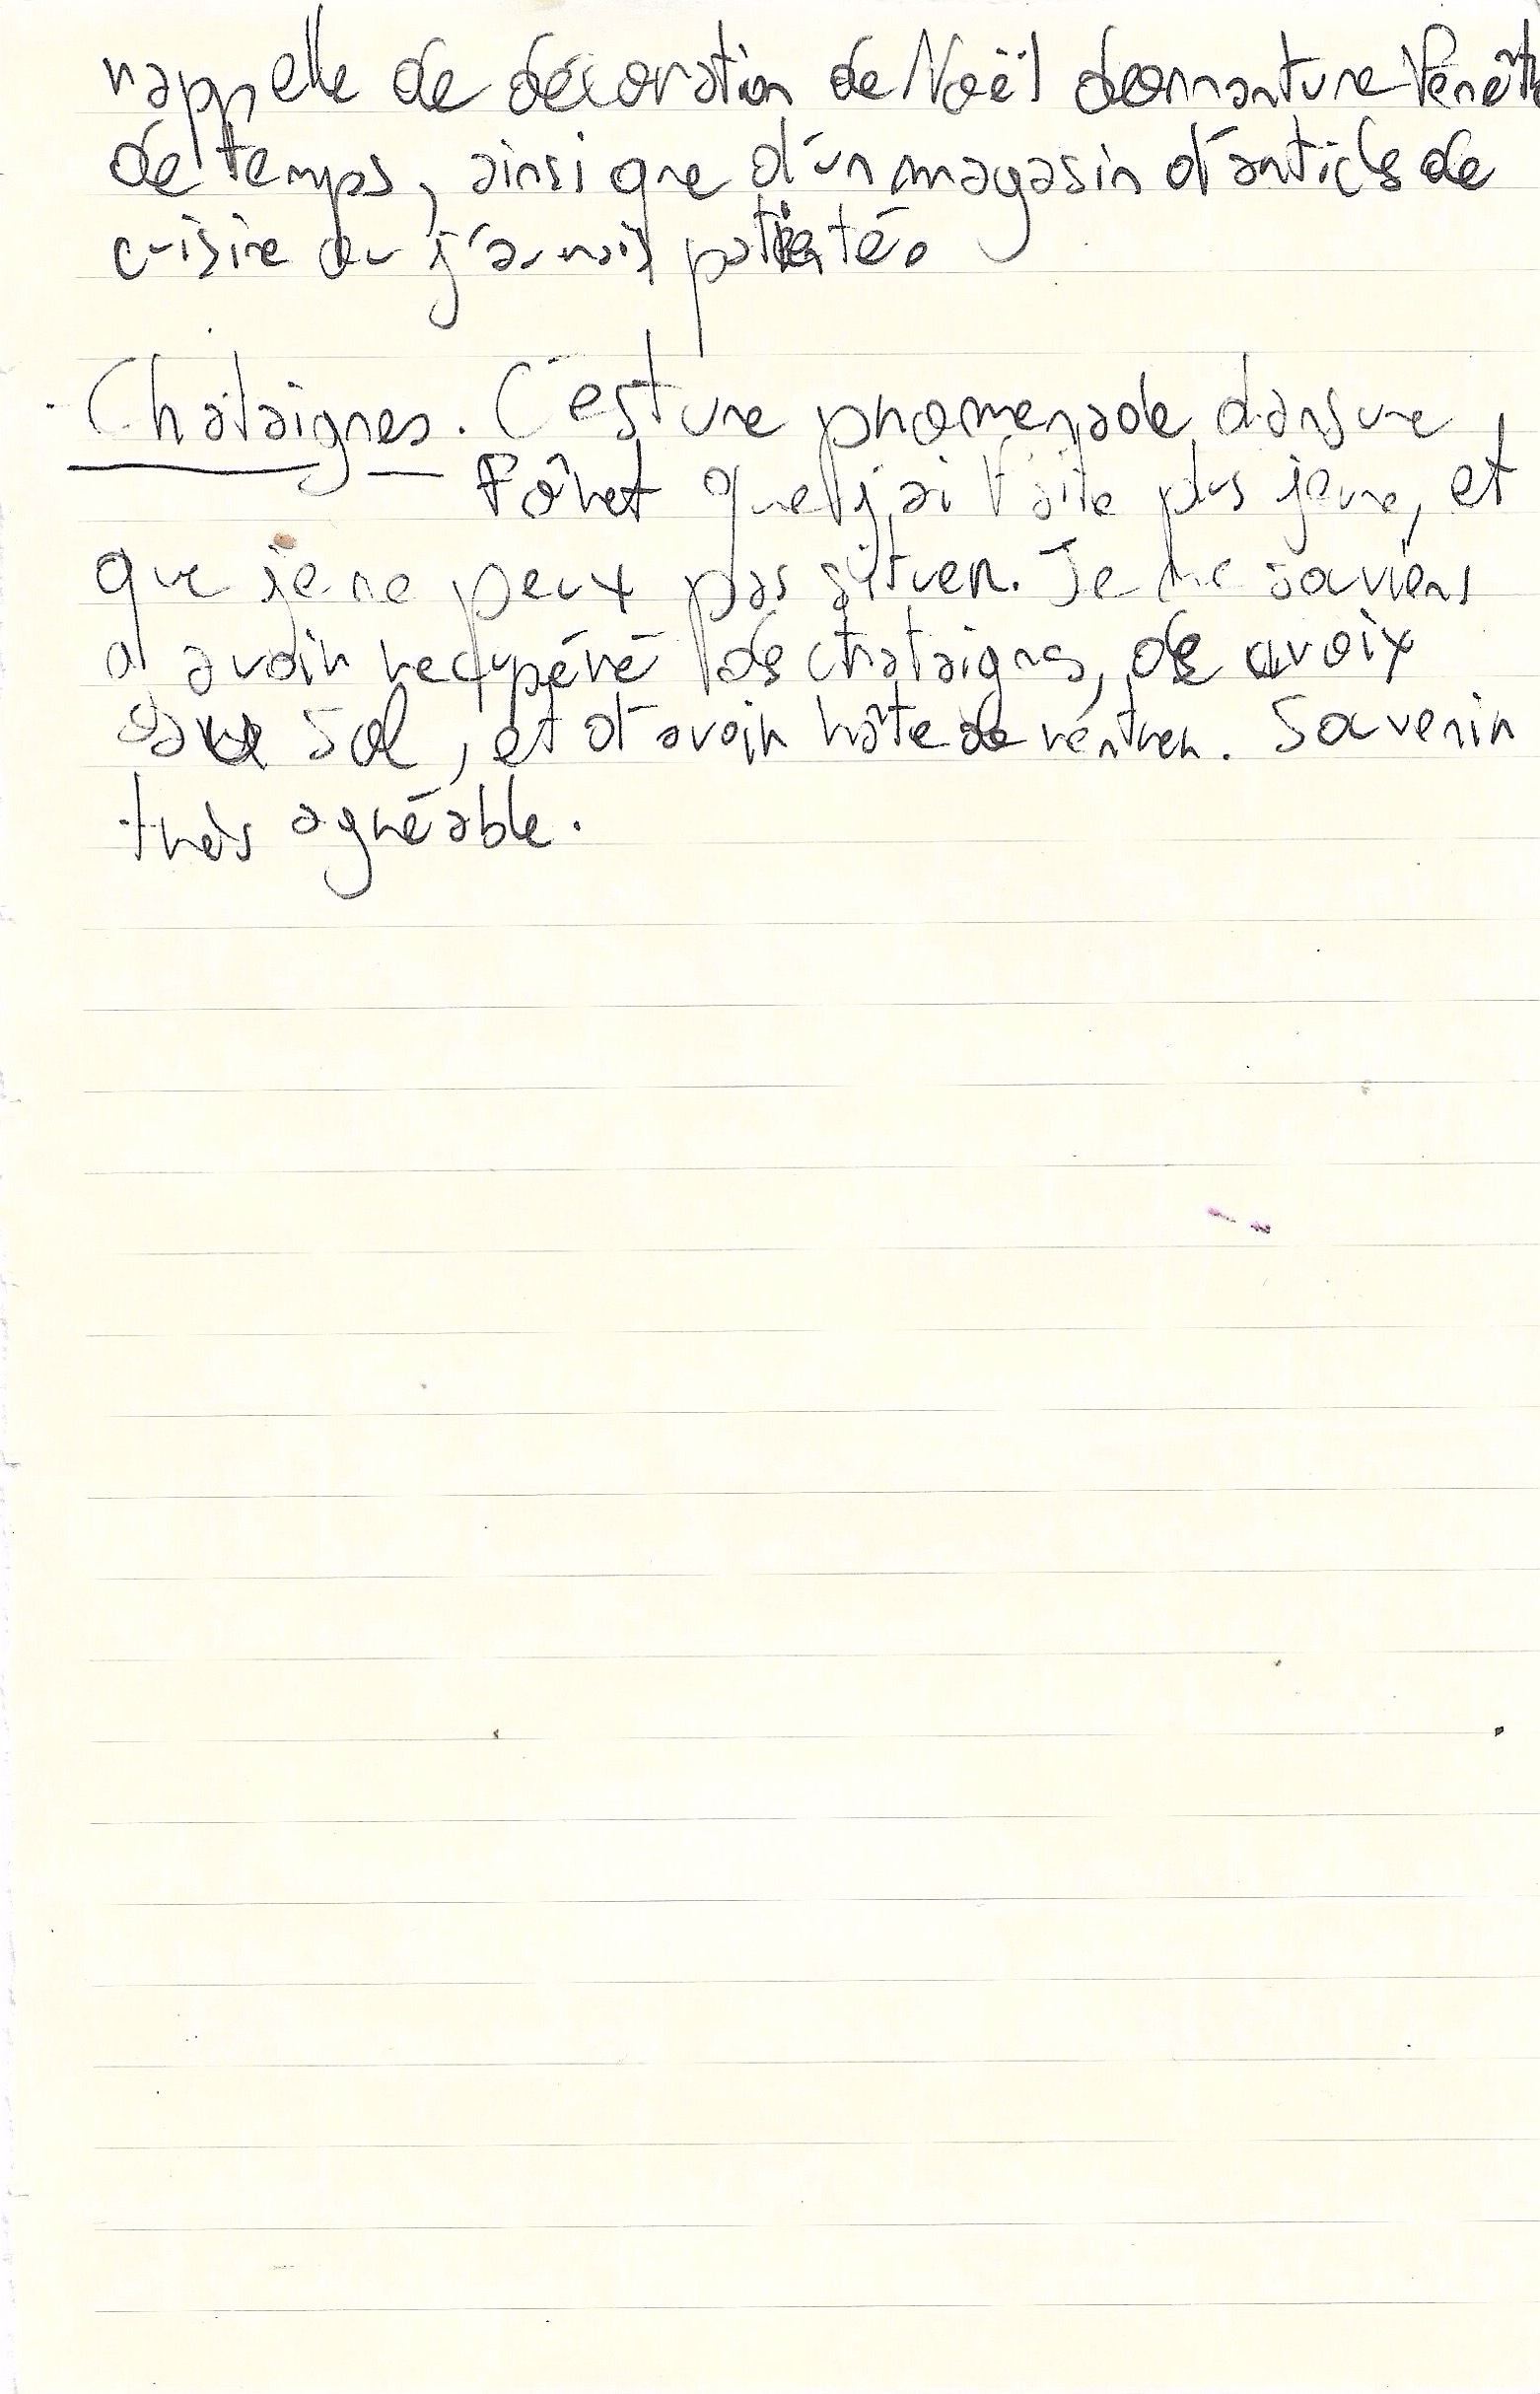 rappelle de décoration de Noël donnant une fenêtre
de temps, ainsi que d'un magasin d'articles de
cuisine ou j'aurais patienté.
Châtaignes. C'est une promenade dans une
fôret que j'ai faite plus jeune, et
que je ne peux pas situer. Je me souviens
d'avoir recupéré des chataignes, de
sol, et d'avoir hâte de rentrer. Souvenir
très agréable.